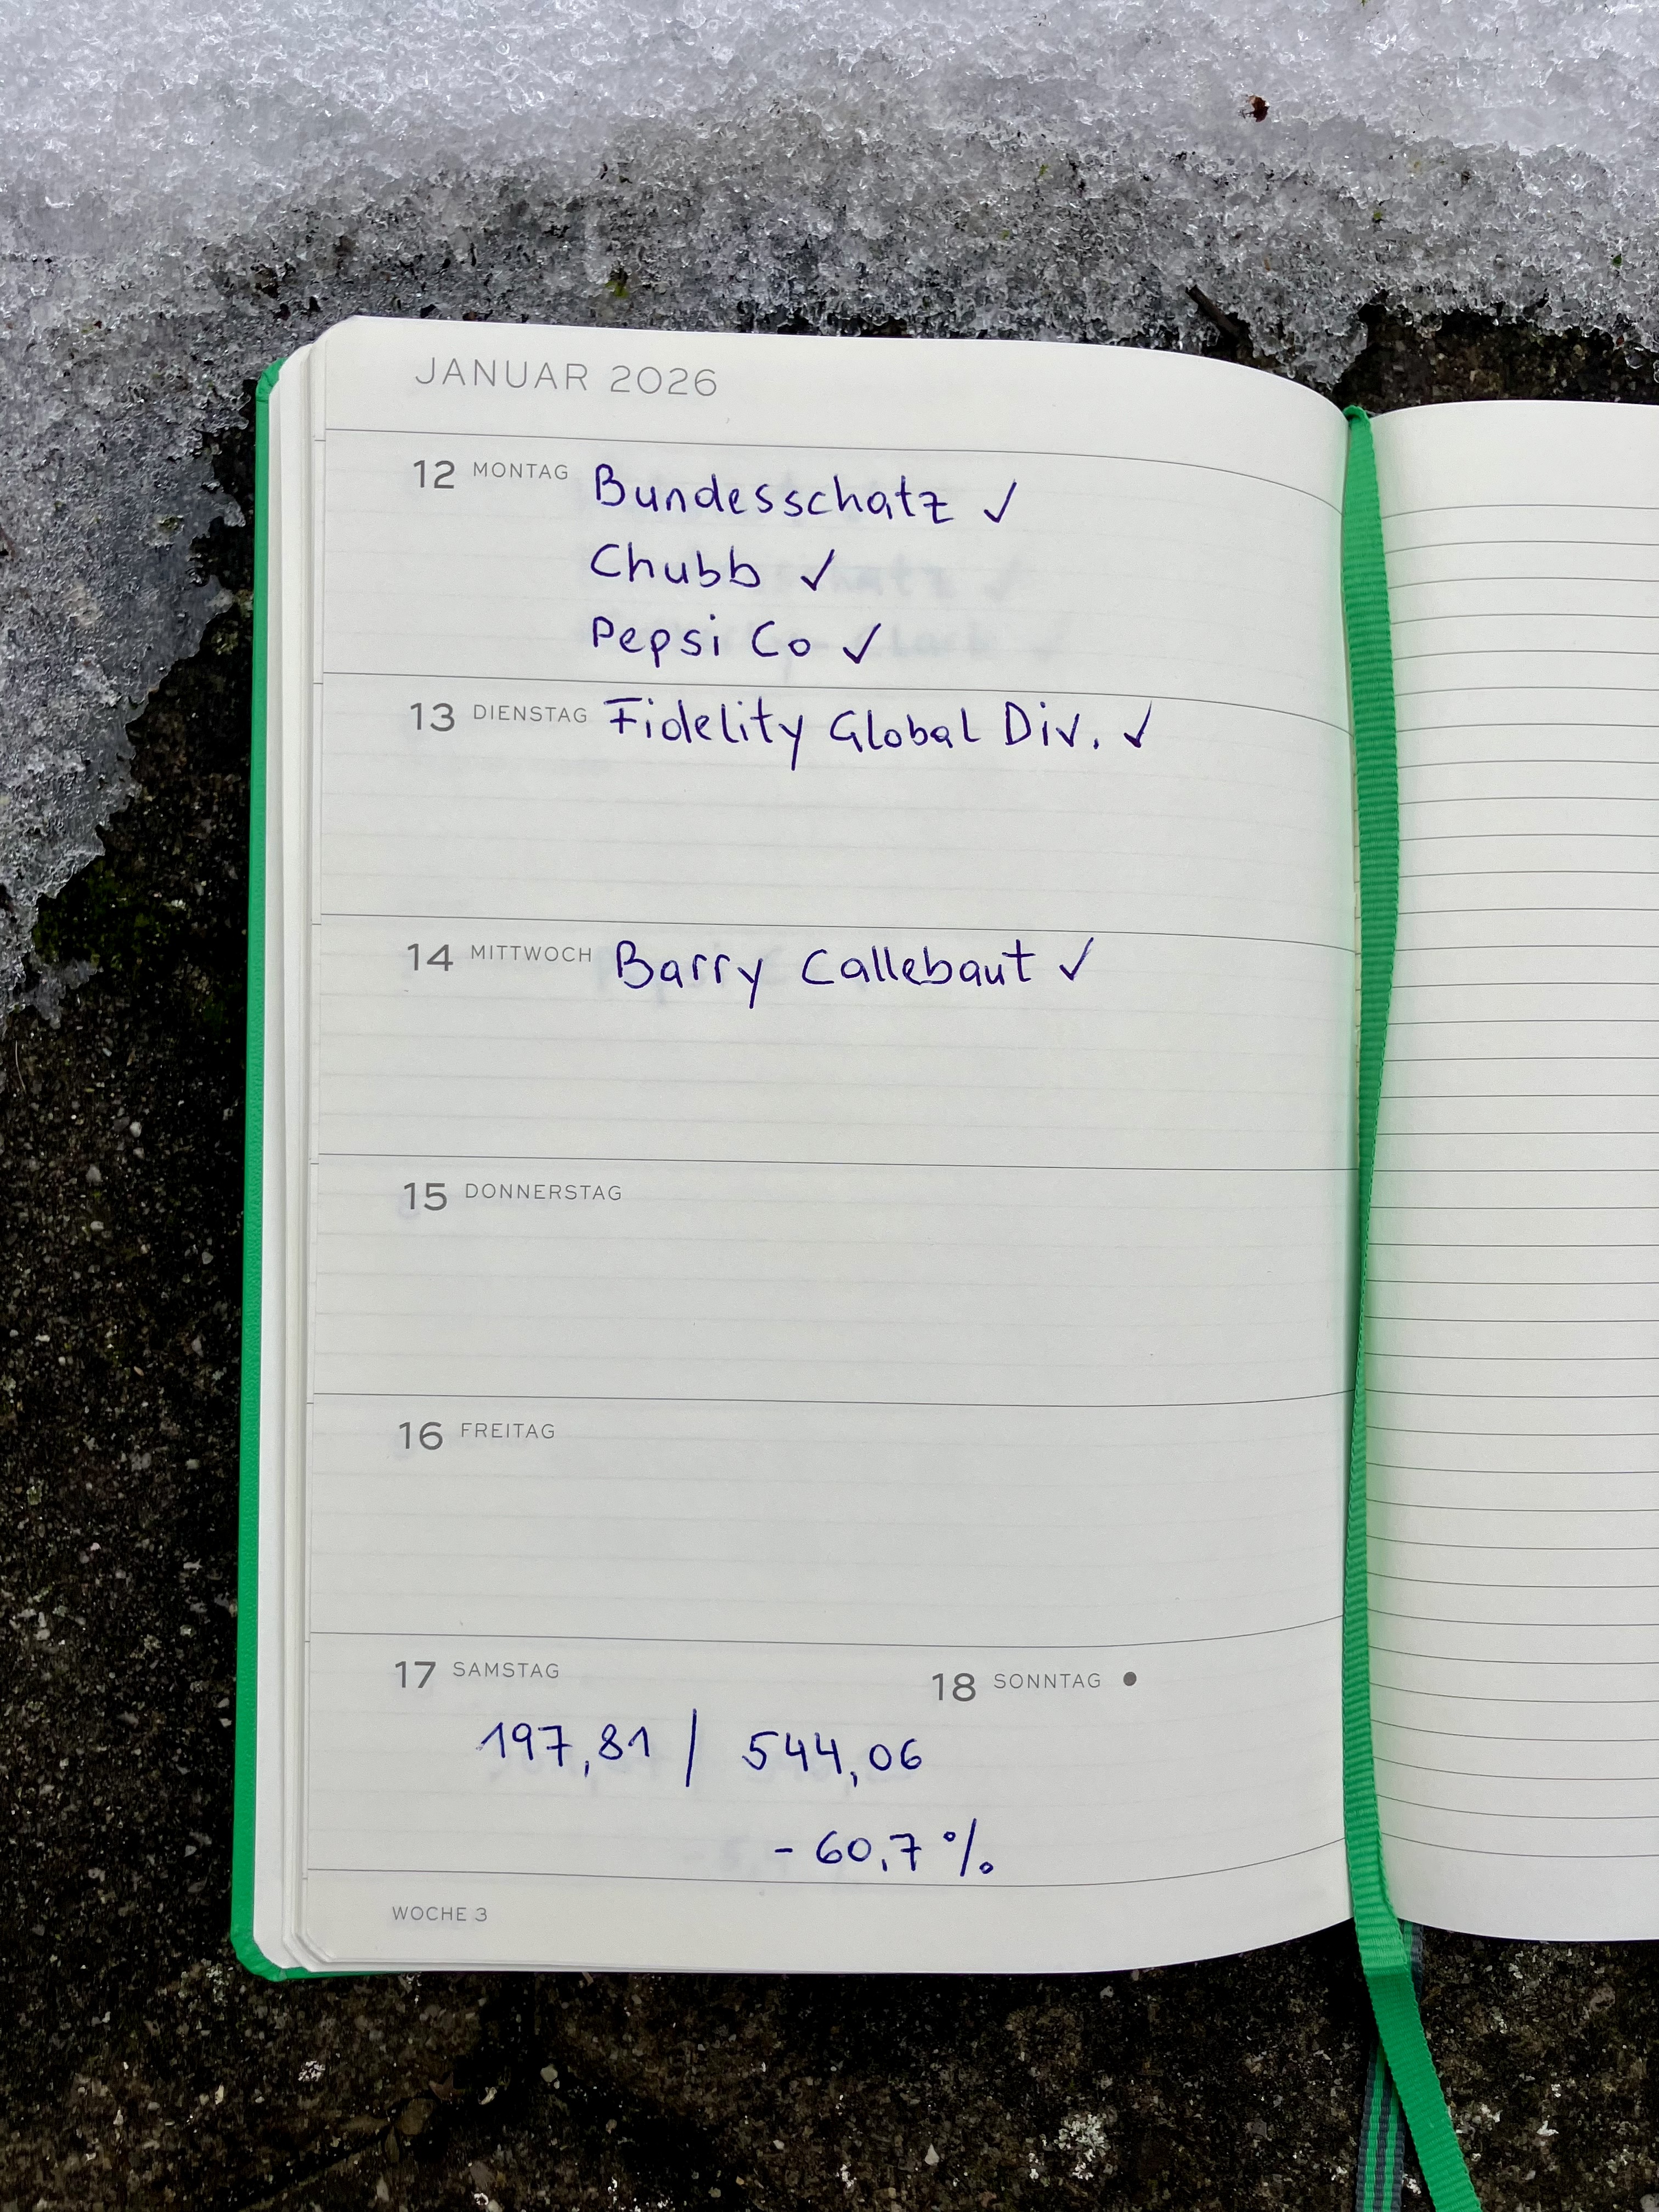 JANUAR 2026
12 MONTAG Bundesschatz ✓
Chubb ✓
Pepsi Co ✓
13 DIENSTAG Fidelity Global Div. ✓
14 MITTWOCH Barry Callebaut ✓
15 DONNERSTAG
16 FREITAG
17 SAMSTAG 18 SONNTAG
197,81 / 544,06
- 60,7 %
WOCHE 3